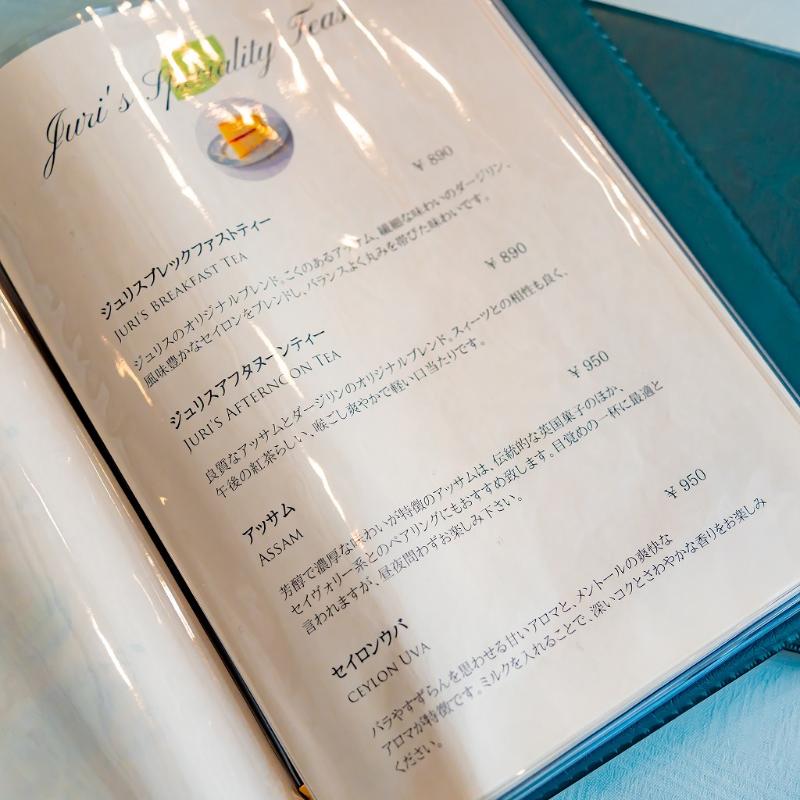 Juri's Speciality Teas
¥ 890
ジュリスブレックファストティー
JURI'S BREAKFAST TEA
ジュリスのオリジナルブレンド。こくのあるアッサム、繊細な味わいのダージリン、
風味豊かなセイロンをブレンドし、バランスよく丸みを帯びた味わいです。
¥ 890
ジュリスアフタヌーンティー
JURI'S AFTERNOON TEA
良質なアッサムとダージリンのオリジナルブレンド。スイーツとの相性も良く、
午後の紅茶らしい、喉ごし爽やかで軽い口当たりです。
¥ 950
アッサム
ASSAM
芳醇で濃厚な味わいが特徴のアッサムは、伝統的な英国菓子のほか、
セイヴォリー系とのペアリングにもおすすめ致します。目覚めの一杯に最適と
言われますが、昼夜問わずお楽しみ下さい。
¥ 950
セイロンウバ
CEYLON UVA
バラやすずらんを思わせる甘いアロマと、メントールの爽快な
アロマが特徴です。ミルクを入れることで、深いコクとさわやかな香りをお楽しみ
ください。